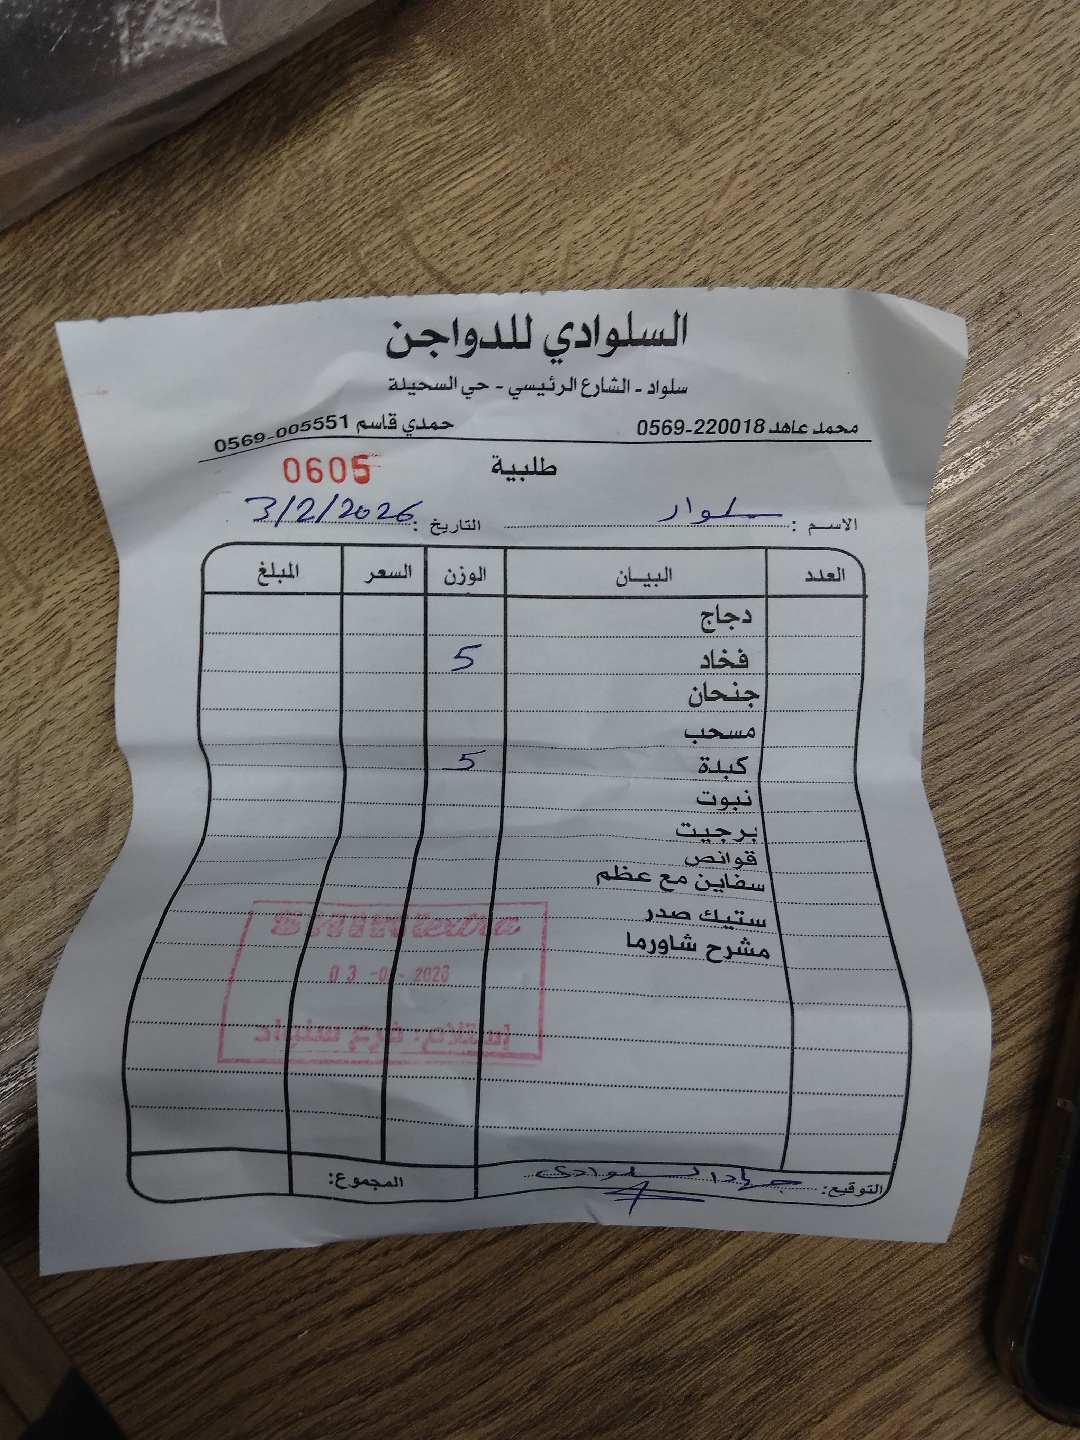 السلوادي للدواجن
سلواد - الشارع الرئيسي - حي السحيلة
محمد عاهد 0569-220018 حمدي قاسم 0569-005551
طلبية 0605
الاسم : سلواد التاريخ : 3/2/2026
العدد البيـان الوزن السعر المبلغ
دجاج
فخاد 5
جنحان
مسحب
كبدة 5
نبوت
برجيت
قوانص
سفاين مع عظم
ستيك صدر
مشرح شاورما
extra
03 - 2026
إستلام: فرع سلواد
التوقيع: جهاد السلوادي المجموع: